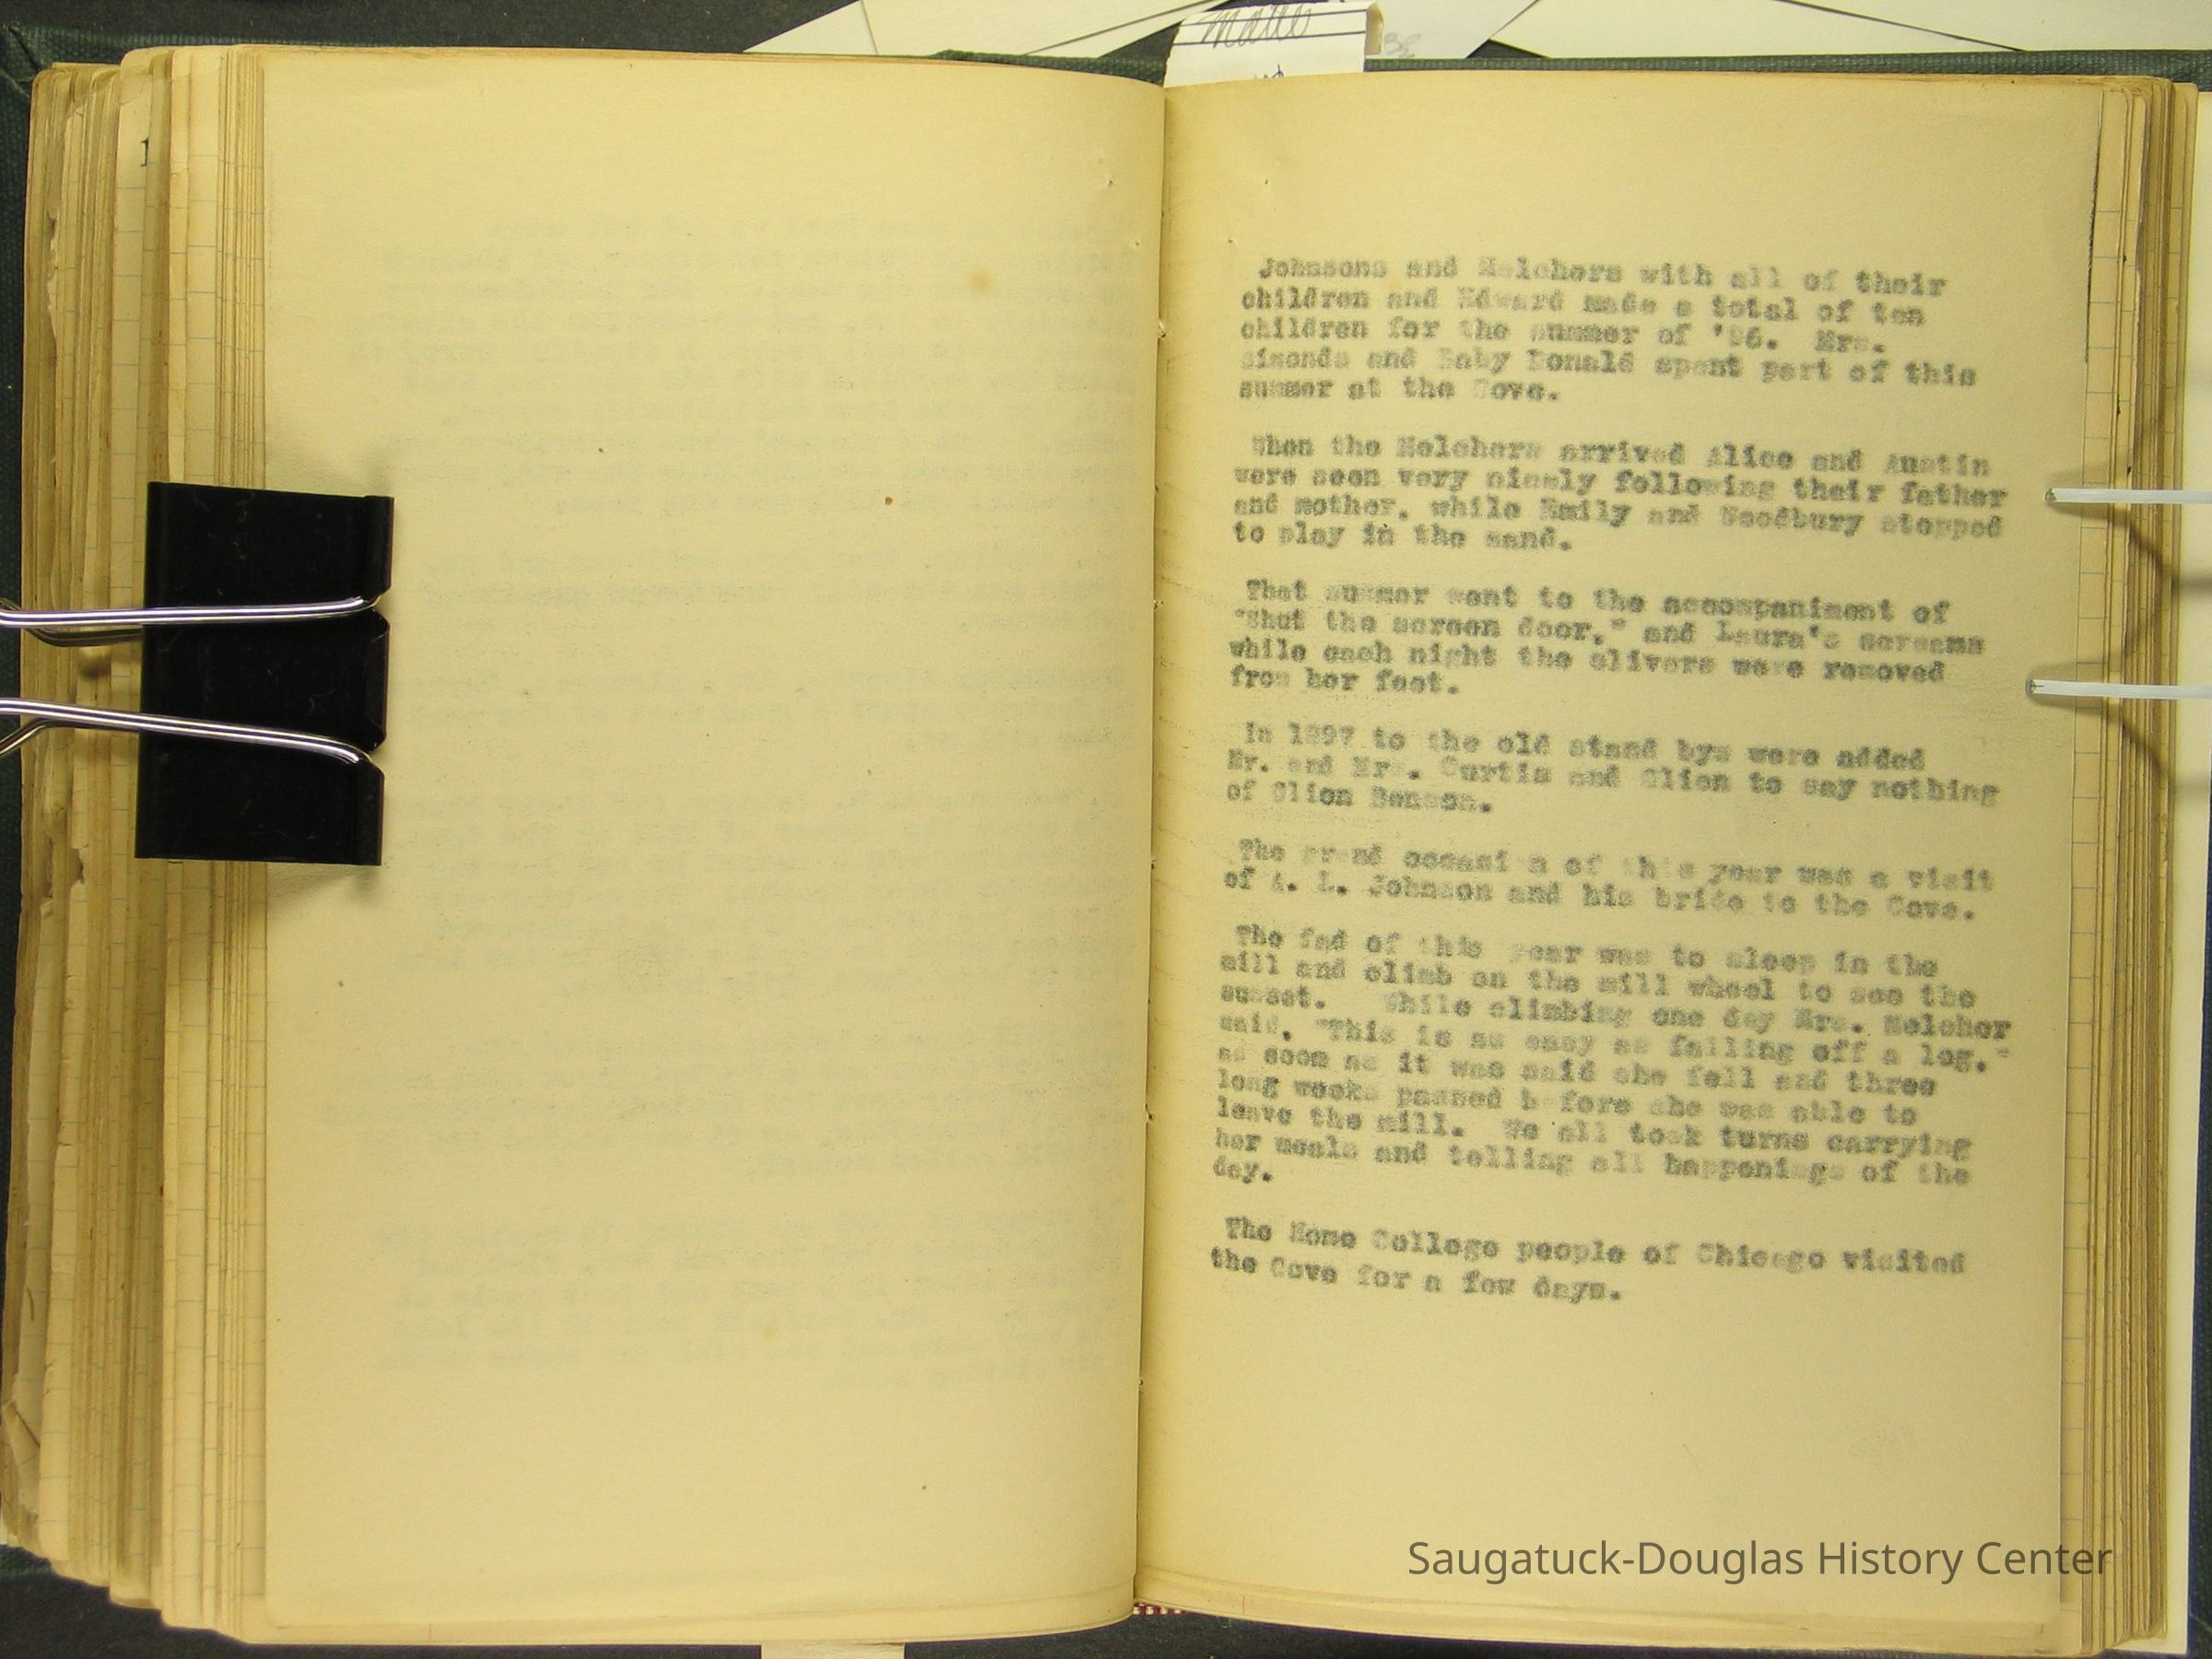 Johnsons and Melchers with all of their
children and Edward made a total of ten
children for the summer of '96.  Mrs.
Simonds and Baby Donald spent part of this
summer at the Cove.
When the Melchers arrived Alice and Austin
were seen very nicely following their father
and mother. while Emily and Woodbury stopped
to play in the sand.
That summer went to the accompaniment of
"Shut the screen door," and Laura's screams
while each night the slivers were removed
from her feet.
In 1897 to the old stand bys were added
Mr. and Mrs. Curtis and to say nothing
of
The grand occasion of this year was a visit
of A. L. Johnson and his bride to the Cove.
The fad of this year was to sleep in the
mill and climb on the mill wheel to see the
sunset.   While climbing one day Mrs. Melcher
said, "This is as easy as falling off a log."
as soon as it was said she fell and three
long weeks passed before she was able to
leave the mill.  We all took turns carrying
her meals and telling all happenings of the
day.
The Home College people of Chicago visited
the Cove for a few days.
Saugatuck-Douglas History Center